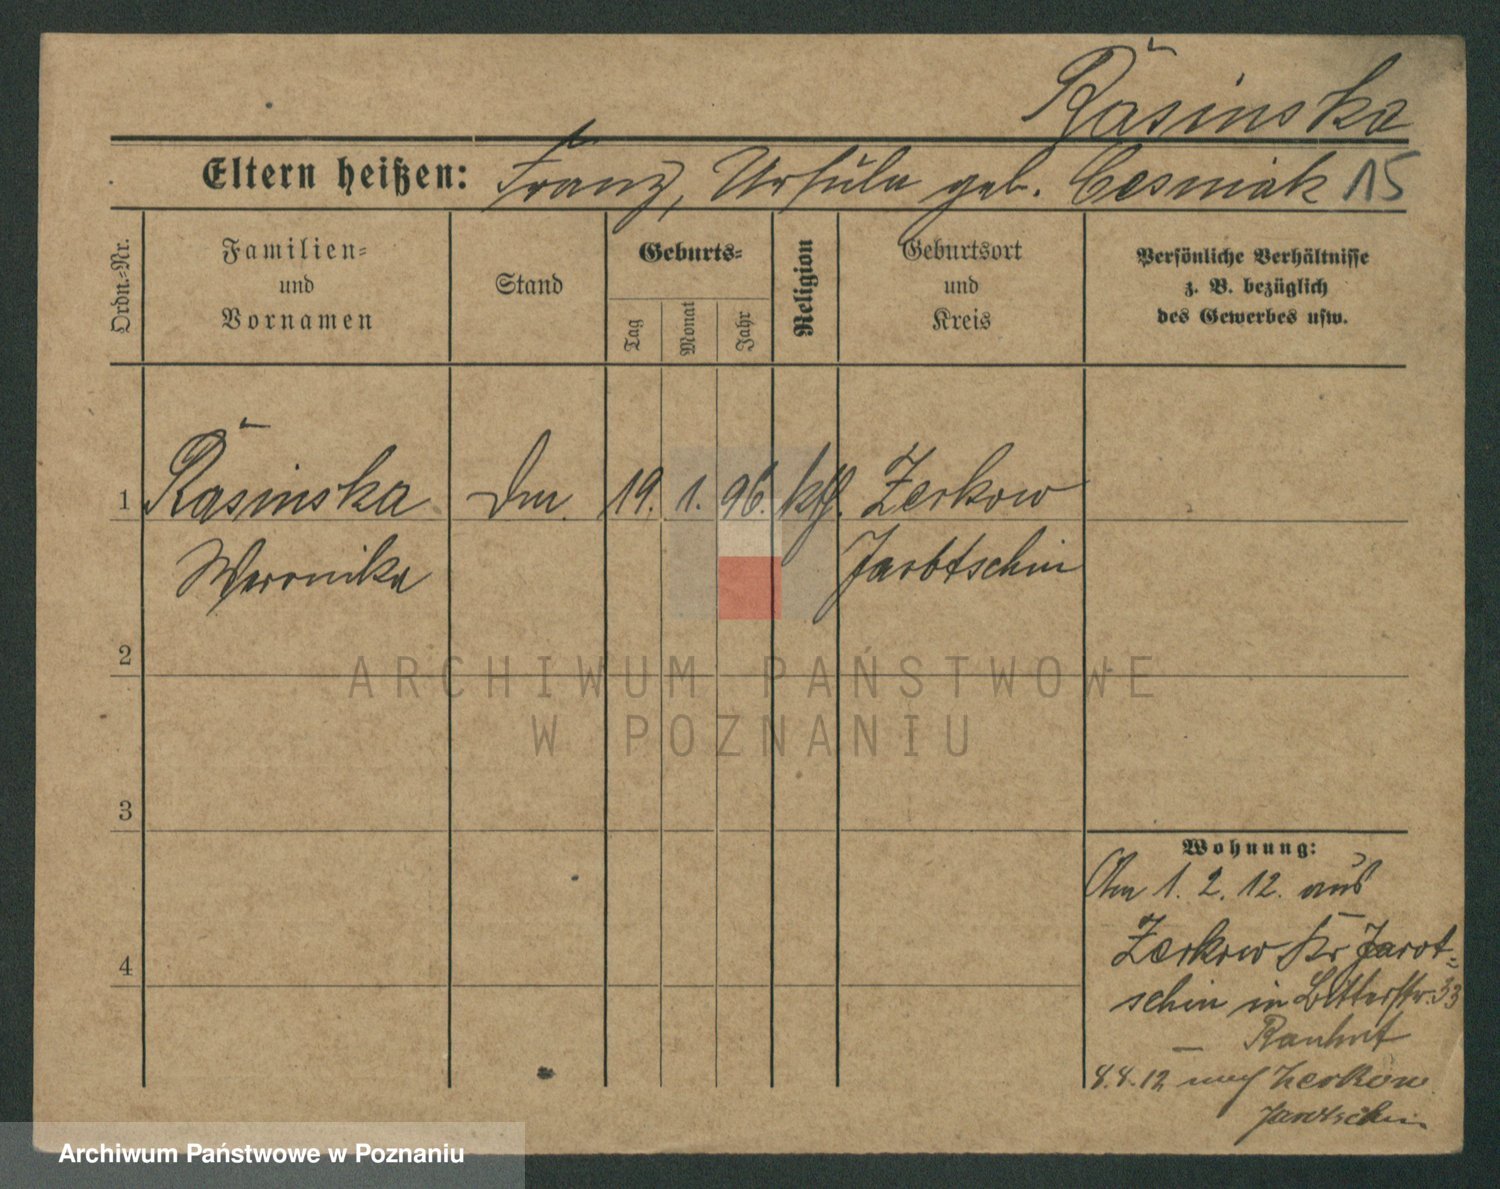 Rasinska
Eltern heißen: Franz, Ursula geb. Cesniak 15
Ordn.=Nr.
Familien=
und
Vornamen
Stand
Geburts=
Tag
Monat
Jahr
Religion
Geburtsort
und
Kreis
Persönliche Verhältnisse
z. B. bezüglich
des Gewerbes usw.
1 Rasinska 19. 1. 96. kth. Zerkow
Weronika Jarotschin
2
3
4
Wohnung:
Am 1. 2. 12. aus
Zerkow Kr Jarot=
schin in 33
8.4.12 nach Zerkow
Jarotschin
ARCHIWUM PAŃSTWOWE
W POZNANIU
Archiwum Państwowe w Poznaniu